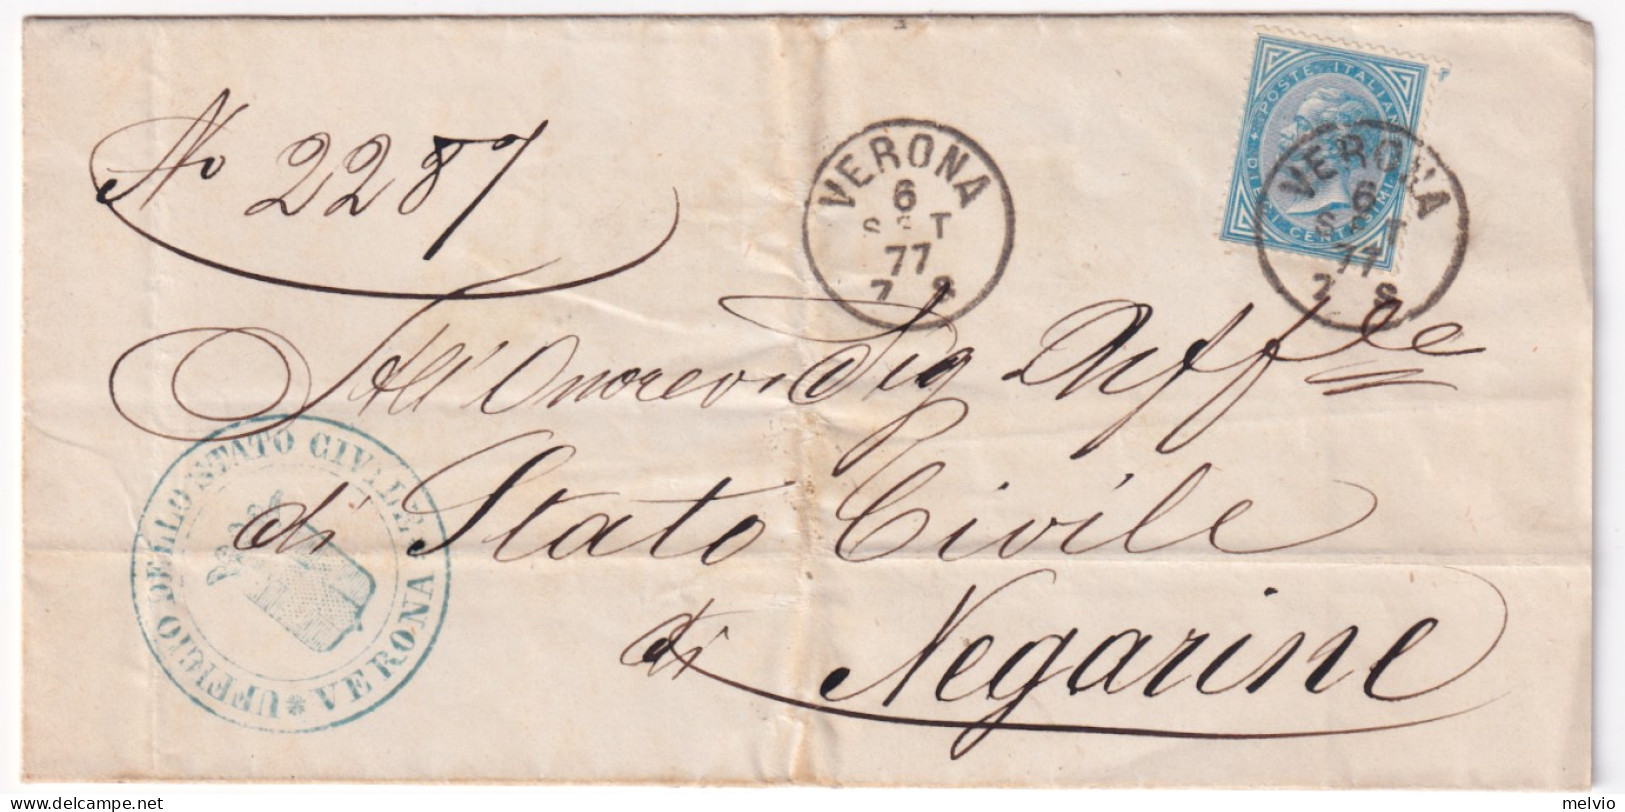 No 2287
VERONA
6
SET
77
7 S
POSTE ITALIAN
DIECI CENTESIMI
VERONA
6
SET
77
7 S
All'Onorev. Sig Uff.le
di Stato Civile
di Negarine
UFFICIO DELLO STATO CIVILE
VERONA
delcampe.net
melvio